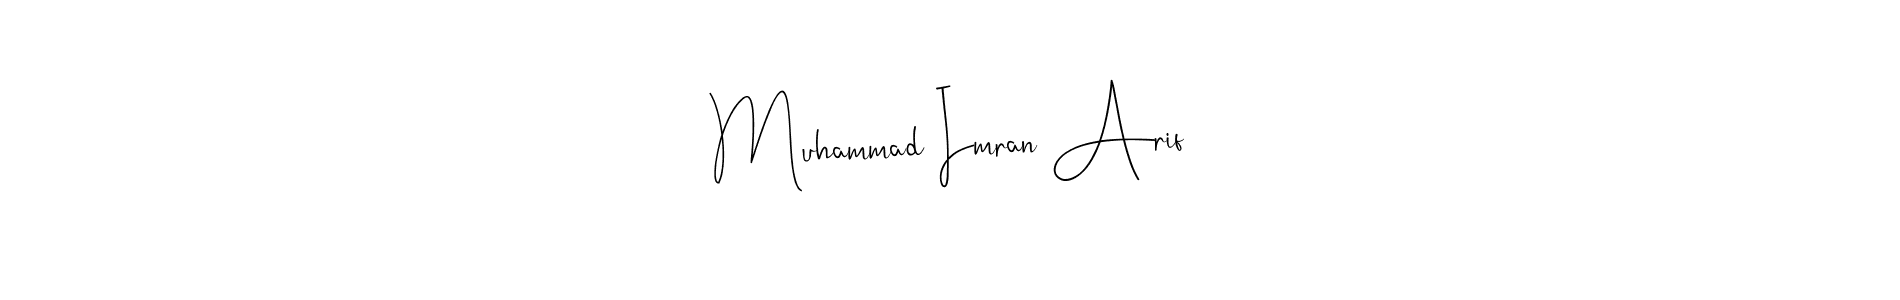 Muhammad Imran Arif